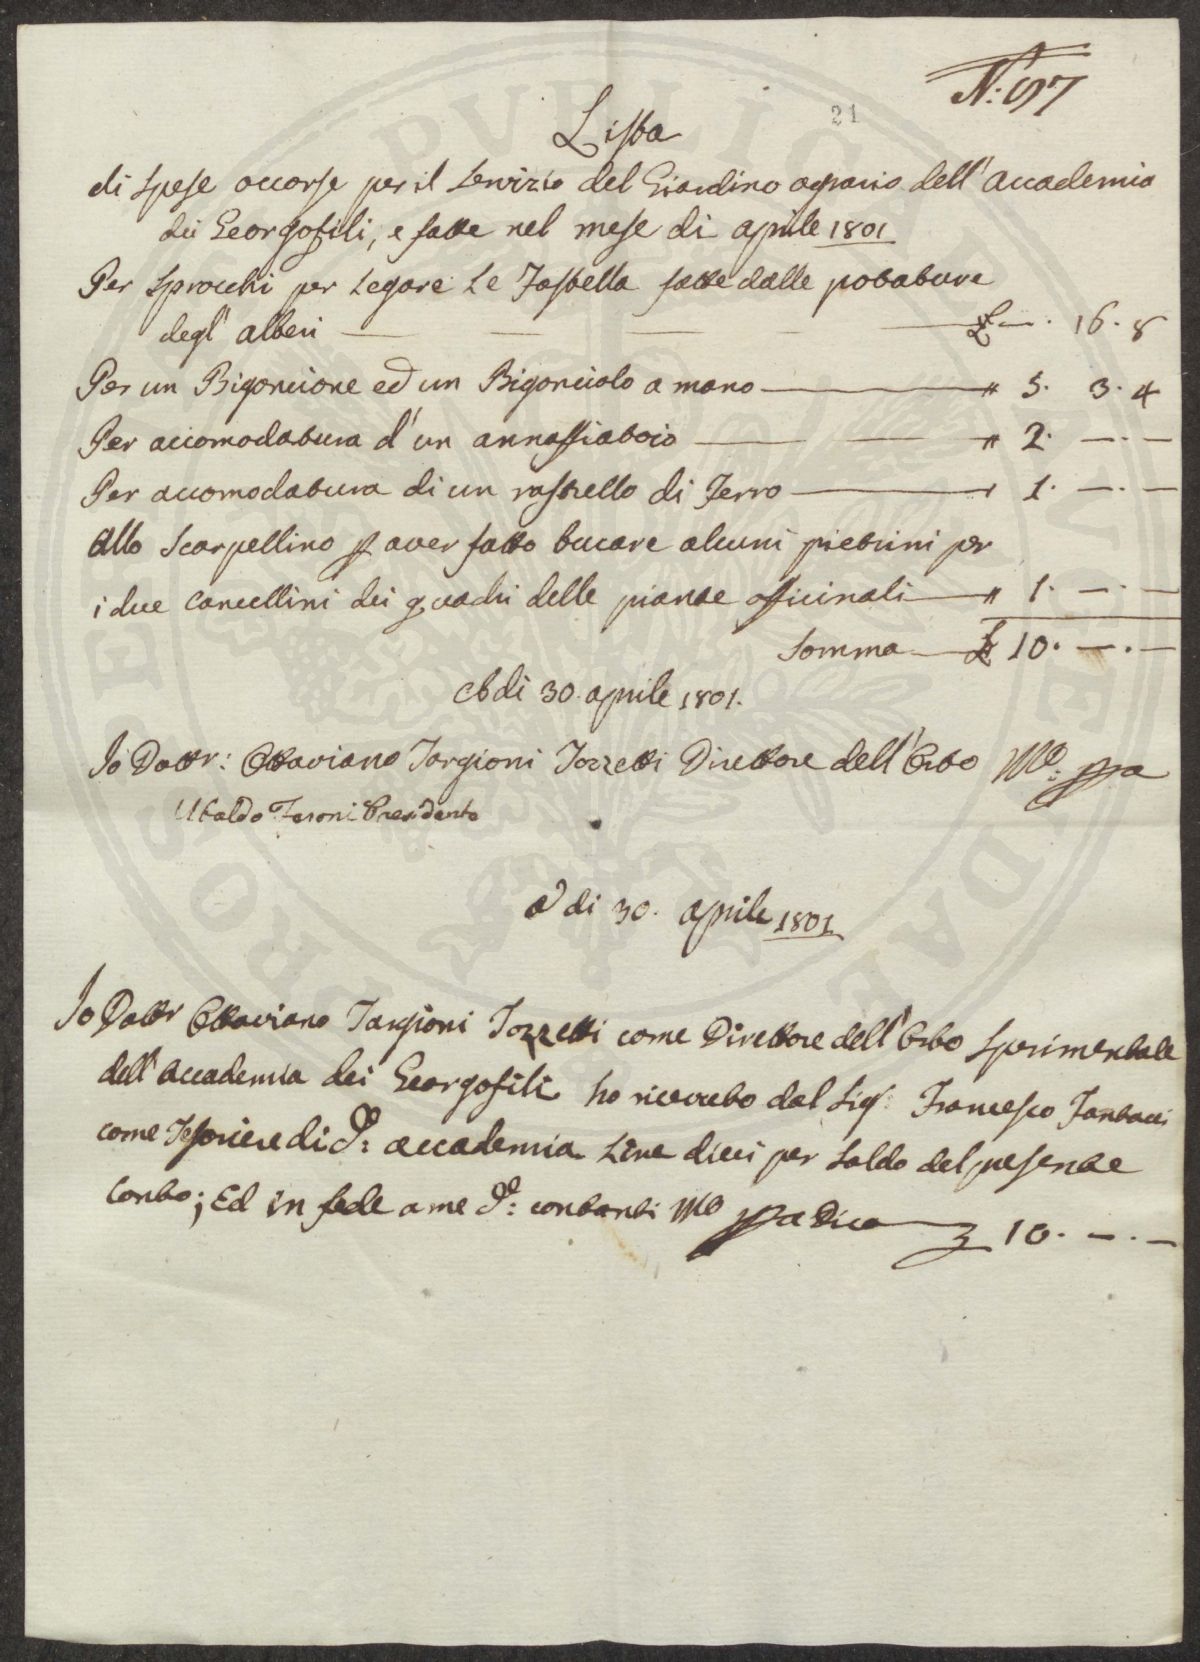 N: 97
21
Lista
di spese occorse per il servizio del Giardino agrario dell'Accademia
dei Georgofili, e fatte nel mese di aprile 1801
Per sprocchi per legare le fastella fatte dalle potature
degl'alberi £ —. 16. 8
Per un Bigoncione ed un Bigonciolo a mano " 5. 3. 4
Per accomodatura d'un annaffiatoio " 2. —. —
Per accomodatura di un rastrello di ferro " 1. —. —
Allo Scarpellino p aver fatto bucare alcuni pietrini per
i due cancellini dei quadri delle piante officinali " 1. —. —
Somma £ 10. —. —
A di 30. aprile 1801.
Io Dottr: Ottaviano Targioni Tozzetti Direttore dell'Orto Mo: ppa
Ubaldo Feroni Presidente
A di 30. aprile 1801
Io Dottr Ottaviano Targioni Tozzetti come Direttore dell'Orto Sperimentale
dell'Accademia dei Georgofili ho ricevuto dal Sigr: Francesco
come Tesoriere di da: accademia Lire dieci per saldo del presente
Conto; Ed in fede a me di: contanti Mo ppa Dico £ 10. —. —